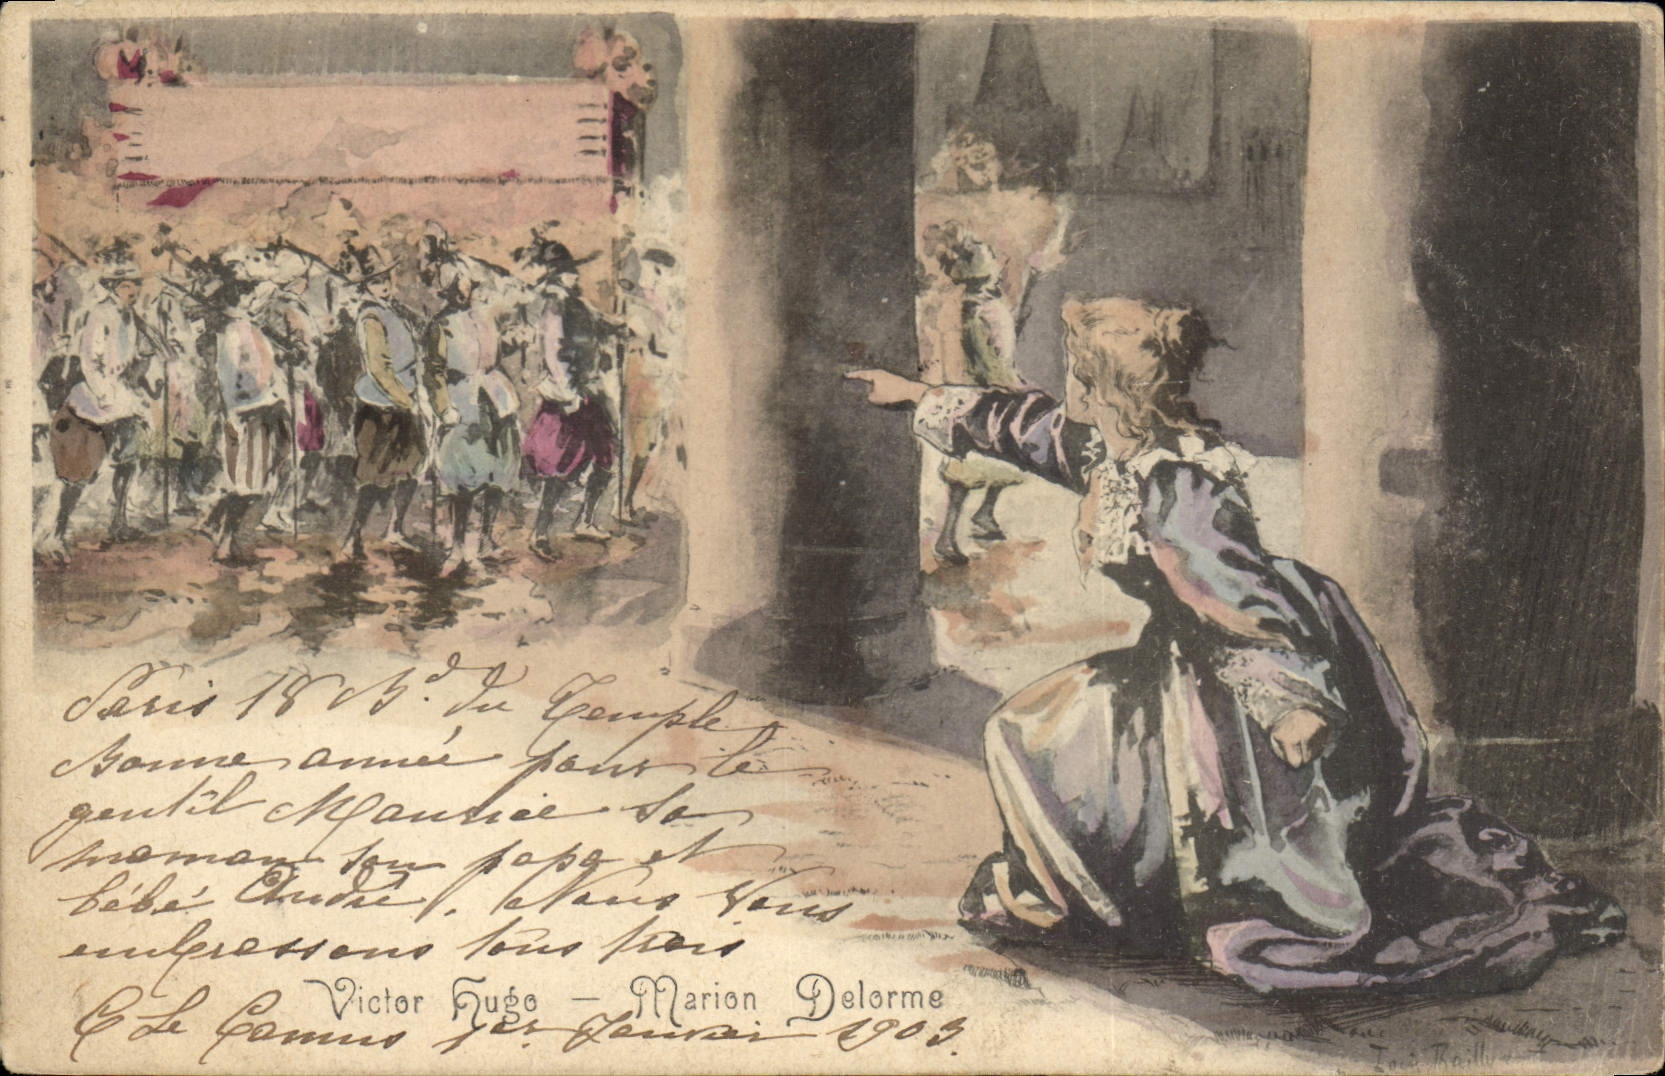 Paris 18 B.d du Temple
Bonne année pour le
gentil Maurice sa
maman son papa et
bébé André. Nous vous
embrassons tous trois
Victor Hugo – Marion Delorme
E Le Camus 1er Janvier 1903.
Bailly